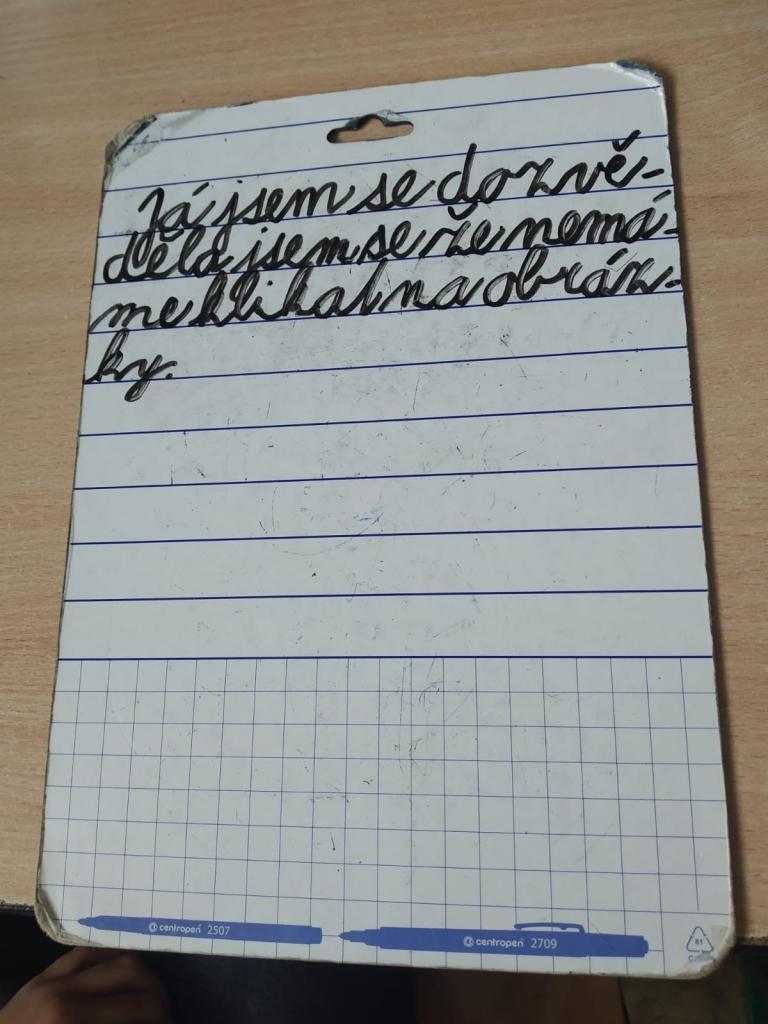 Já jsem se dozvě-
děla jsem se že nemá-
me klikat na obráz-
ky.
centropen 2507
centropen 2709
81